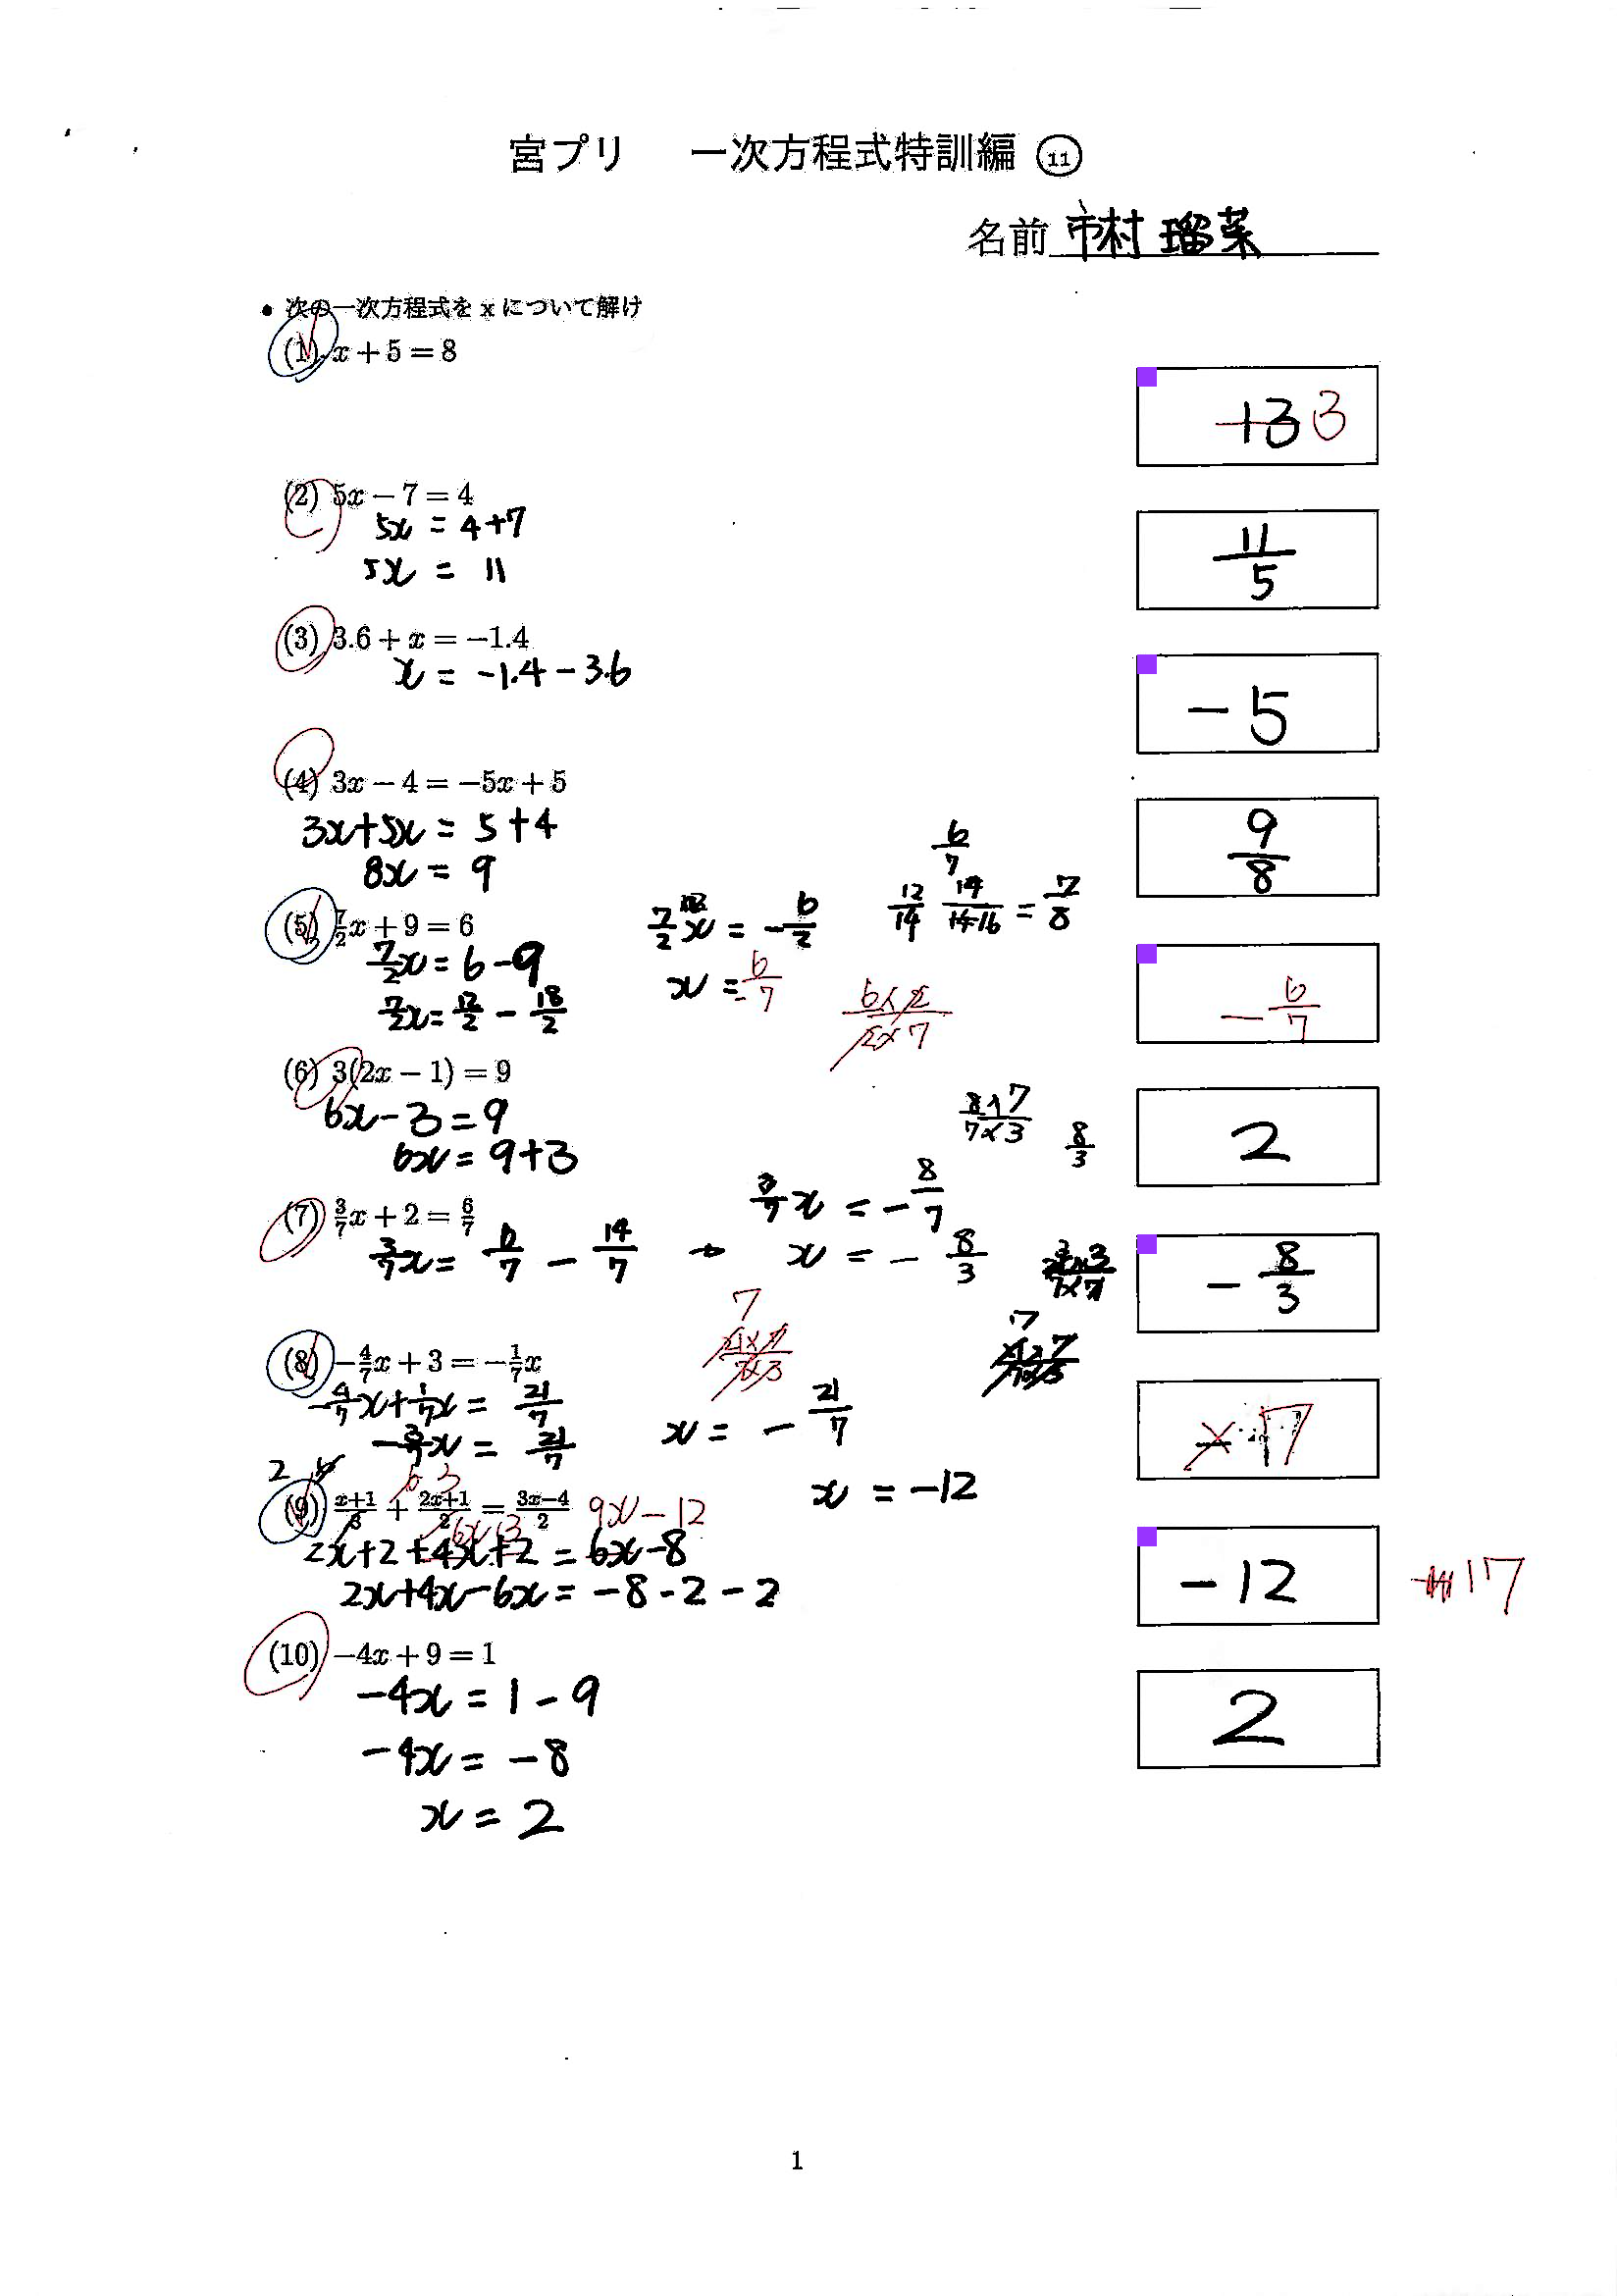 宮プリ 一次方程式特訓編 ⑪
名前 市村 瑠菜
• 次の一次方程式を x について解け
(1) x + 5 = 8
+3 3
(2) 5x − 7 = 4
5x = 4+7
5x = 11
11/5
(3) 3.6 + x = −1.4
x = -1.4 - 3.6
-5
(4) 3x − 4 = −5x + 5
3x+5x = 5+4
8x = 9
9/8
(5) 7/2 x + 9 = 6
7/2 x = 6-9
7/2 x = 12/2 - 18/2
7/2 x = -6/2
x = -6/7
6/7
12/14 14/14-16 = 7/8
6×2/2×7
-6/7
(6) 3(2x − 1) = 9
6x-3 = 9
6x = 9+3
2
(7) 3/7 x + 2 = 6/7
3/7 x = 6/7 - 14/7 →
3/7 x = -8/7
x = -8/3
8×7/7×3 8/3
-8/3
(8) −4/7 x + 3 = −1/7 x
-4/7 x + 1/7 x = 21/7
-3/7 x = 21/7
x = -21/7
7
21×7/7×3
7
7
(9) x+1/3 + 2x+1/2 = 3x−4/2 9x-12
2 6 3
6x+3
2x+2+4x+2 = 6x-8
2x+4x-6x = -8-2-2
x = -12
-12
17
(10) −4x + 9 = 1
-4x = 1-9
-4x = -8
x = 2
2
1